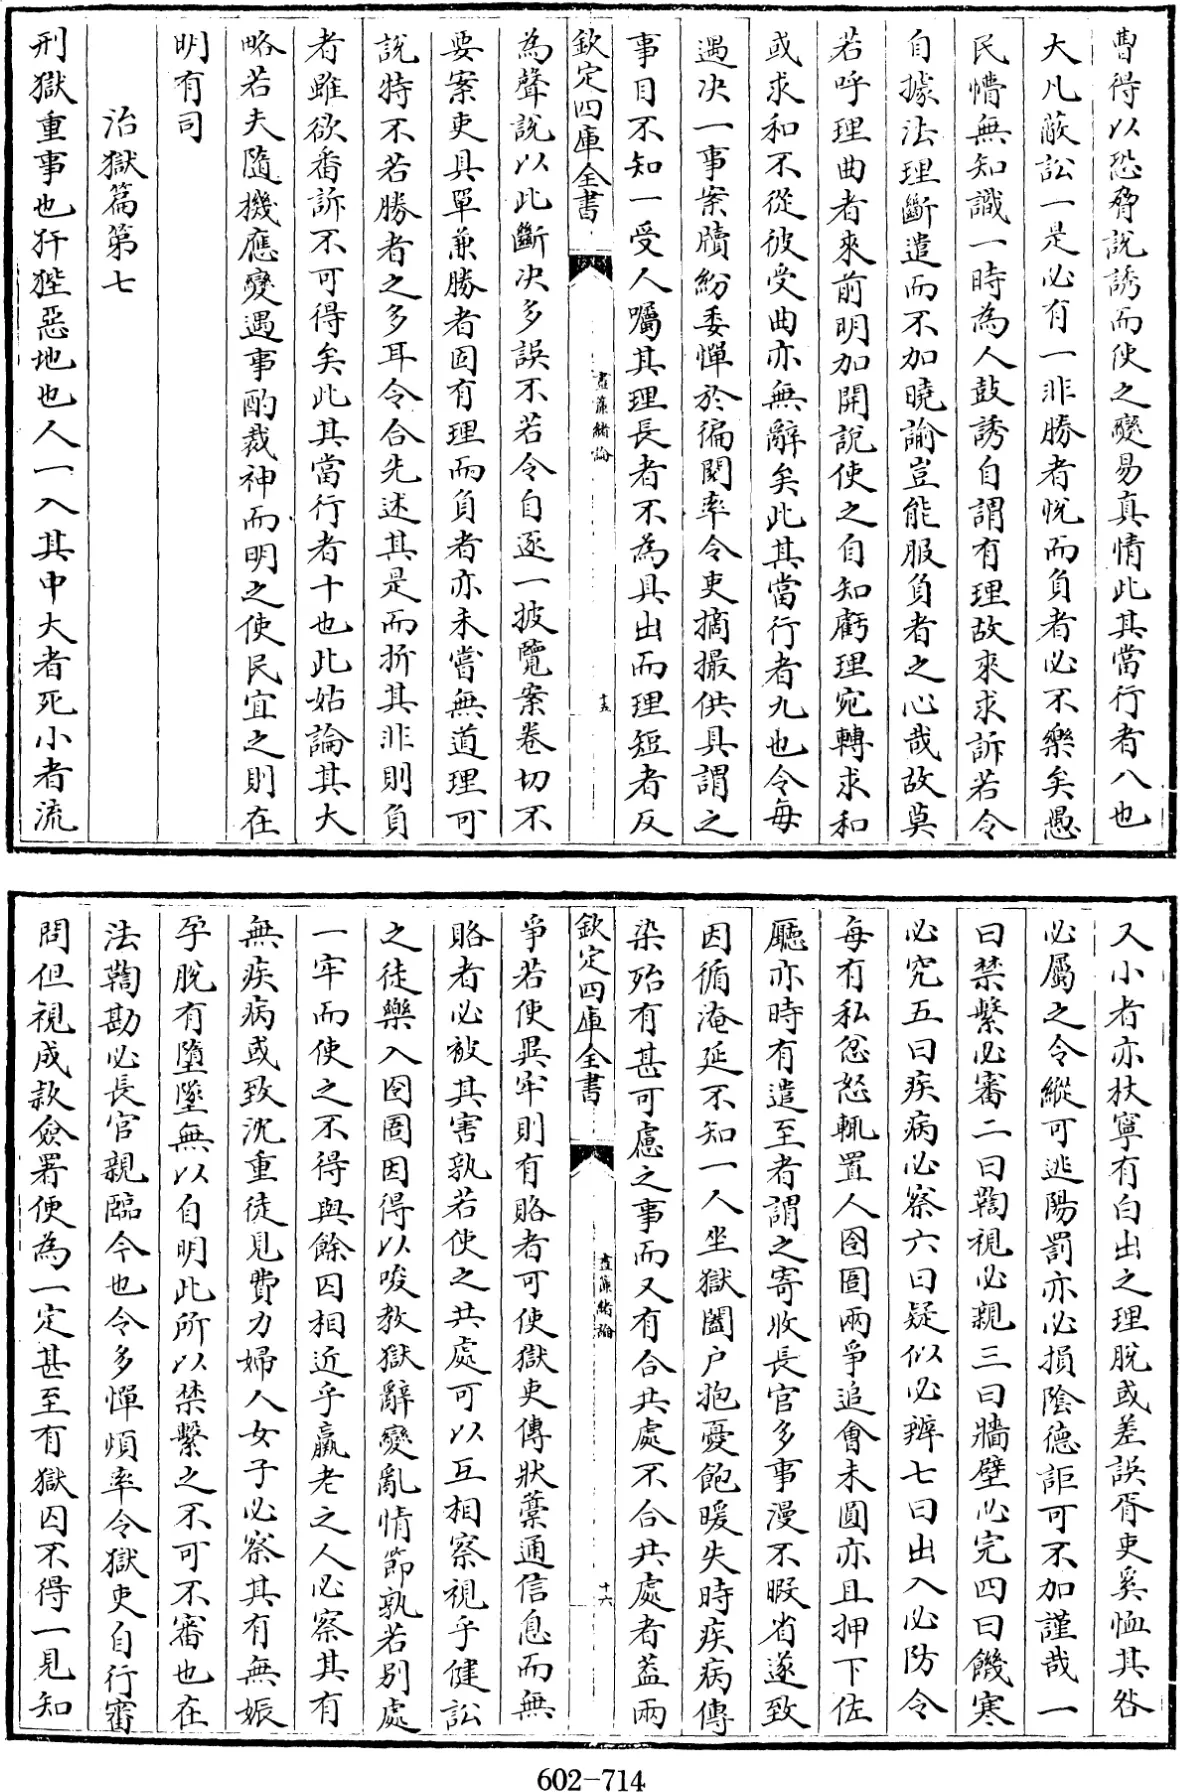 曹得以恐脅說誘而使之變易真情此其當行者八也
大凡蔽訟一是必有一非勝者悅而負者必不樂矣愚
民懵無知識一時為人鼓誘自謂有理故來求訴若令
自據法理斷遣而不加曉諭豈能服負者之心哉故莫
若呼理曲者來前明加開說使之自知虧理宛轉求和
或求和不從彼受曲亦無辭矣此其當行者九也令每
遇決一事案牘紛委憚於徧閱率令吏摘撮供具謂之
事目不知一受人囑其理長者不為具出而理短者反
欽定四庫全書
晝簾緒論
十五
為聲說以此斷決多誤不若令自逐一披覽案卷切不
要案吏具單兼勝者固有理而負者亦未嘗無道理可
說特不若勝者之多耳令合先述其是而折其非則負
者雖欲番訴不可得矣此其當行者十也此姑論其大
略若夫隨機應變遇事酌裁神而明之使民宜之則在
明有司
治獄篇第七
刑獄重事也犴狴惡地也人一入其中大者死小者流
又小者亦杖寧有白出之理脫或差誤胥吏奚恤其咎
必屬之令縱可逃陽罰亦必損陰德詎可不加謹哉一
曰禁繫必審二曰鞫視必親三曰牆壁必完四曰饑寒
必究五曰疾病必察六曰疑似必辨七曰出入必防令
每有私忿怒輒置人囹圄兩爭追會未圓亦且押下佐
廳亦時有遣至者謂之寄收長官多事漫不暇省遂致
因循淹延不知一人坐獄闔户抱憂飽暖失時疾病傳
染殆有甚可慮之事而又有合共處不合共處者蓋兩
欽定四庫全書
晝簾緒論
十六
爭若使異牢則有賂者可使獄吏傳狀藁通信息而無
賂者必被其害孰若使之共處可以互相察視乎健訟
之徒樂入囹圄因得以唆教獄辭變亂情節孰若別處
一牢而使之不得與餘囚相近乎羸老之人必察其有
無疾病或致沈重徒見費力婦人女子必察其有無娠
孕脫有墮墜無以自明此所以禁繫之不可不審也在
法鞫勘必長官親臨今也令多憚煩率令獄吏自行審
問但視成款僉署便為一定甚至有獄囚不得一見知
602-714